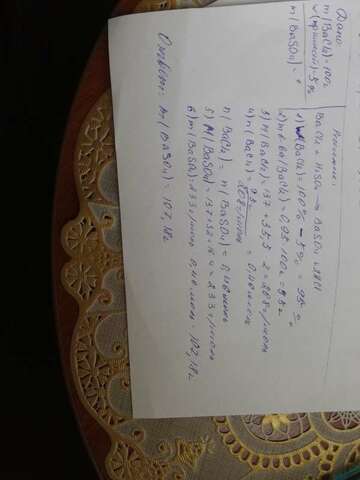 Дано:
m(BaCl2)=100г
w(примесей)-5%
m(BaSO4)-?
Решение:
BaCl2 + H2SO4 → BaSO4 + 2HCl
1) w(BaCl2)=100% - 5% = 95%
2) m в-ва(BaCl2)=0,95·100=95г
3) M(BaCl2)=137+35,5·2=208г/моль
4) n(BaCl2)= 95/208г/моль = 0,46моль
n(BaCl2)=n(BaSO4)=0,46моль
5) M(BaSO4)=137+32+16·4=233г/моль
6) m(BaSO4)=233г/моль·0,46моль=107,18г
Ответ: m(BaSO4)=107,18г